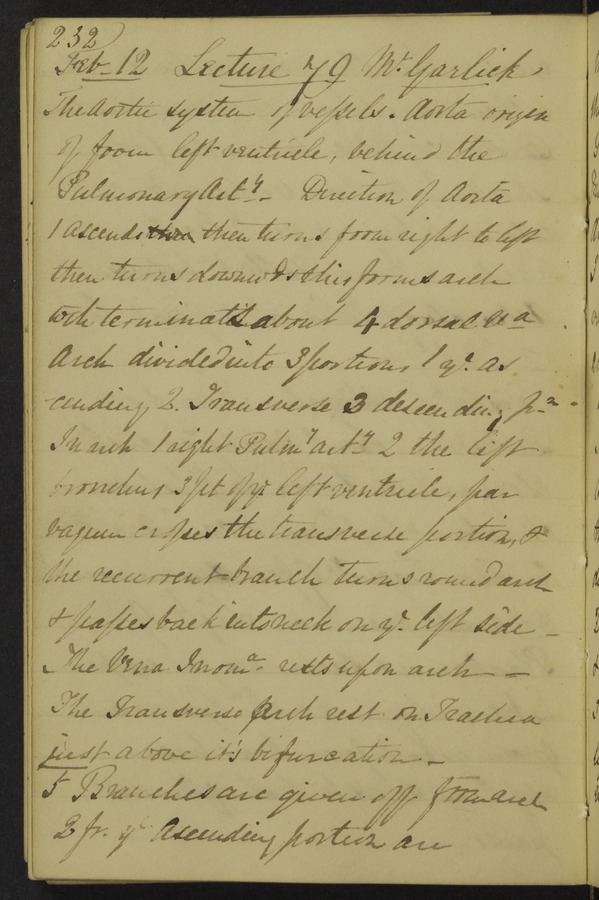 232
Feb 12 Lecture 79 Mr Garlick
The Aortic system of vessels. Aorta origin
of from left ventricle, behind the
Pulmonary Arty. Direction of Aorta
1 ascends then turns from right to left
then turns downwds this forms arch
wch terminates about 4 dorsal
Arch divided into 3 portions 1 ye as
cending 2. Transverse 3 descending pn
In arch 1 right Pulmy arty 2 the left
bronchus 3 pt of ye left ventricle, par
vagum crosses the transverse portion, &
the recurrent branch turns round arch
& passes back into neck on ye left side
The Vena Inoma rests upon arch
The Transverse Arch rest on Trachea
just above it's bifurcation
5 Branches are given off from arch
2 fr. ye Ascending portion are